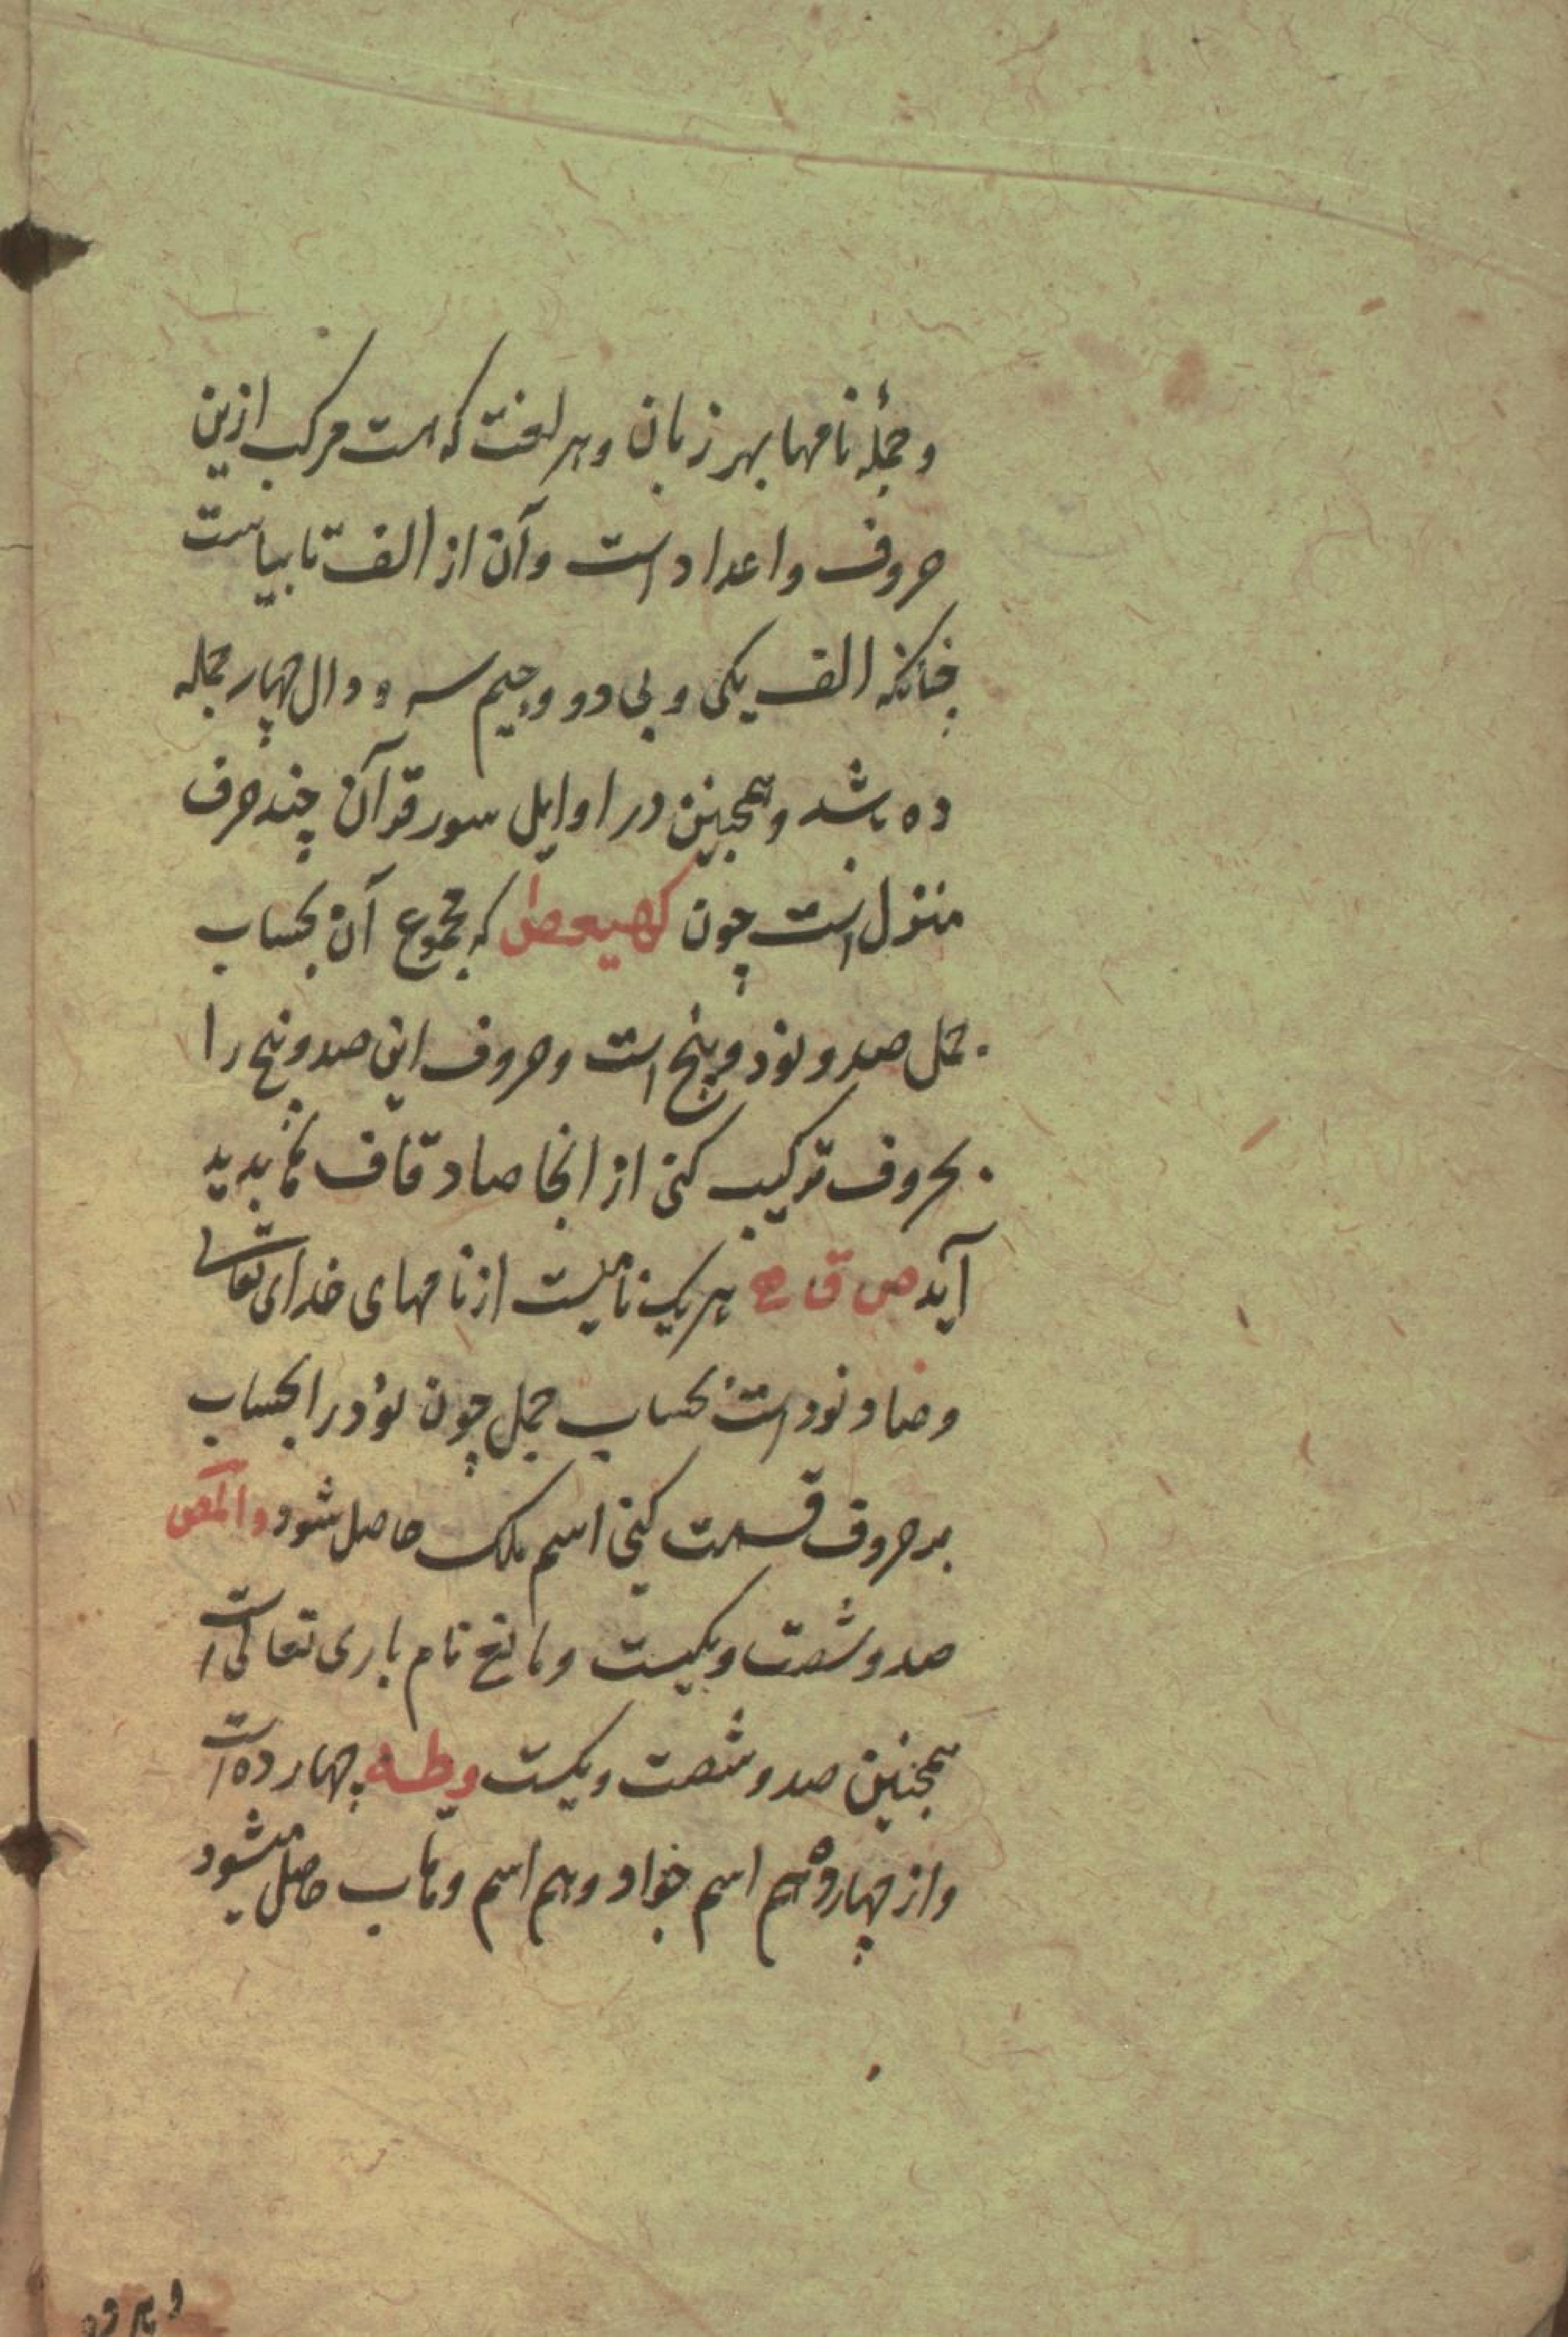 وجملهٔ نامها بهر زبان وبهر لغت که هست مرکب ازین
حروف واعداد است وآن از الف تا بیاست
چنانکه الف یکی و بی دو وجیم سه و دال چهار جمله
ده باشد وهمچنین در اوایل سور قرآن چند حرف
منزل است چون کهیعص که مجموع آن بحساب
جمل صد ونود وپنج است وحروف این صد ونود وپنج را
بحروف ترکیب کنی از انجا صاد قاف ها بدید
آید ص ق ه هر یک نامیست از نامهای خدای تعالی
وصاد نود است بحساب جمل چون نود را بحساب
بر حروف قسمت کنی اسم ملک حاصل شود والمص
صد وشصت ویکیست ومانع نام باری تعالی است
همچنین صد وشصت ویکست وطه چهارده است
واز چهارده هم اسم جواد وهم اسم وهاب حاصل میشود